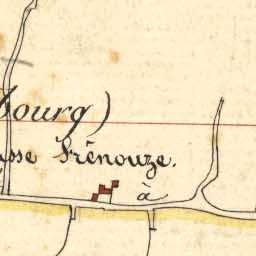 Bourg)
sse Frênouze.
à